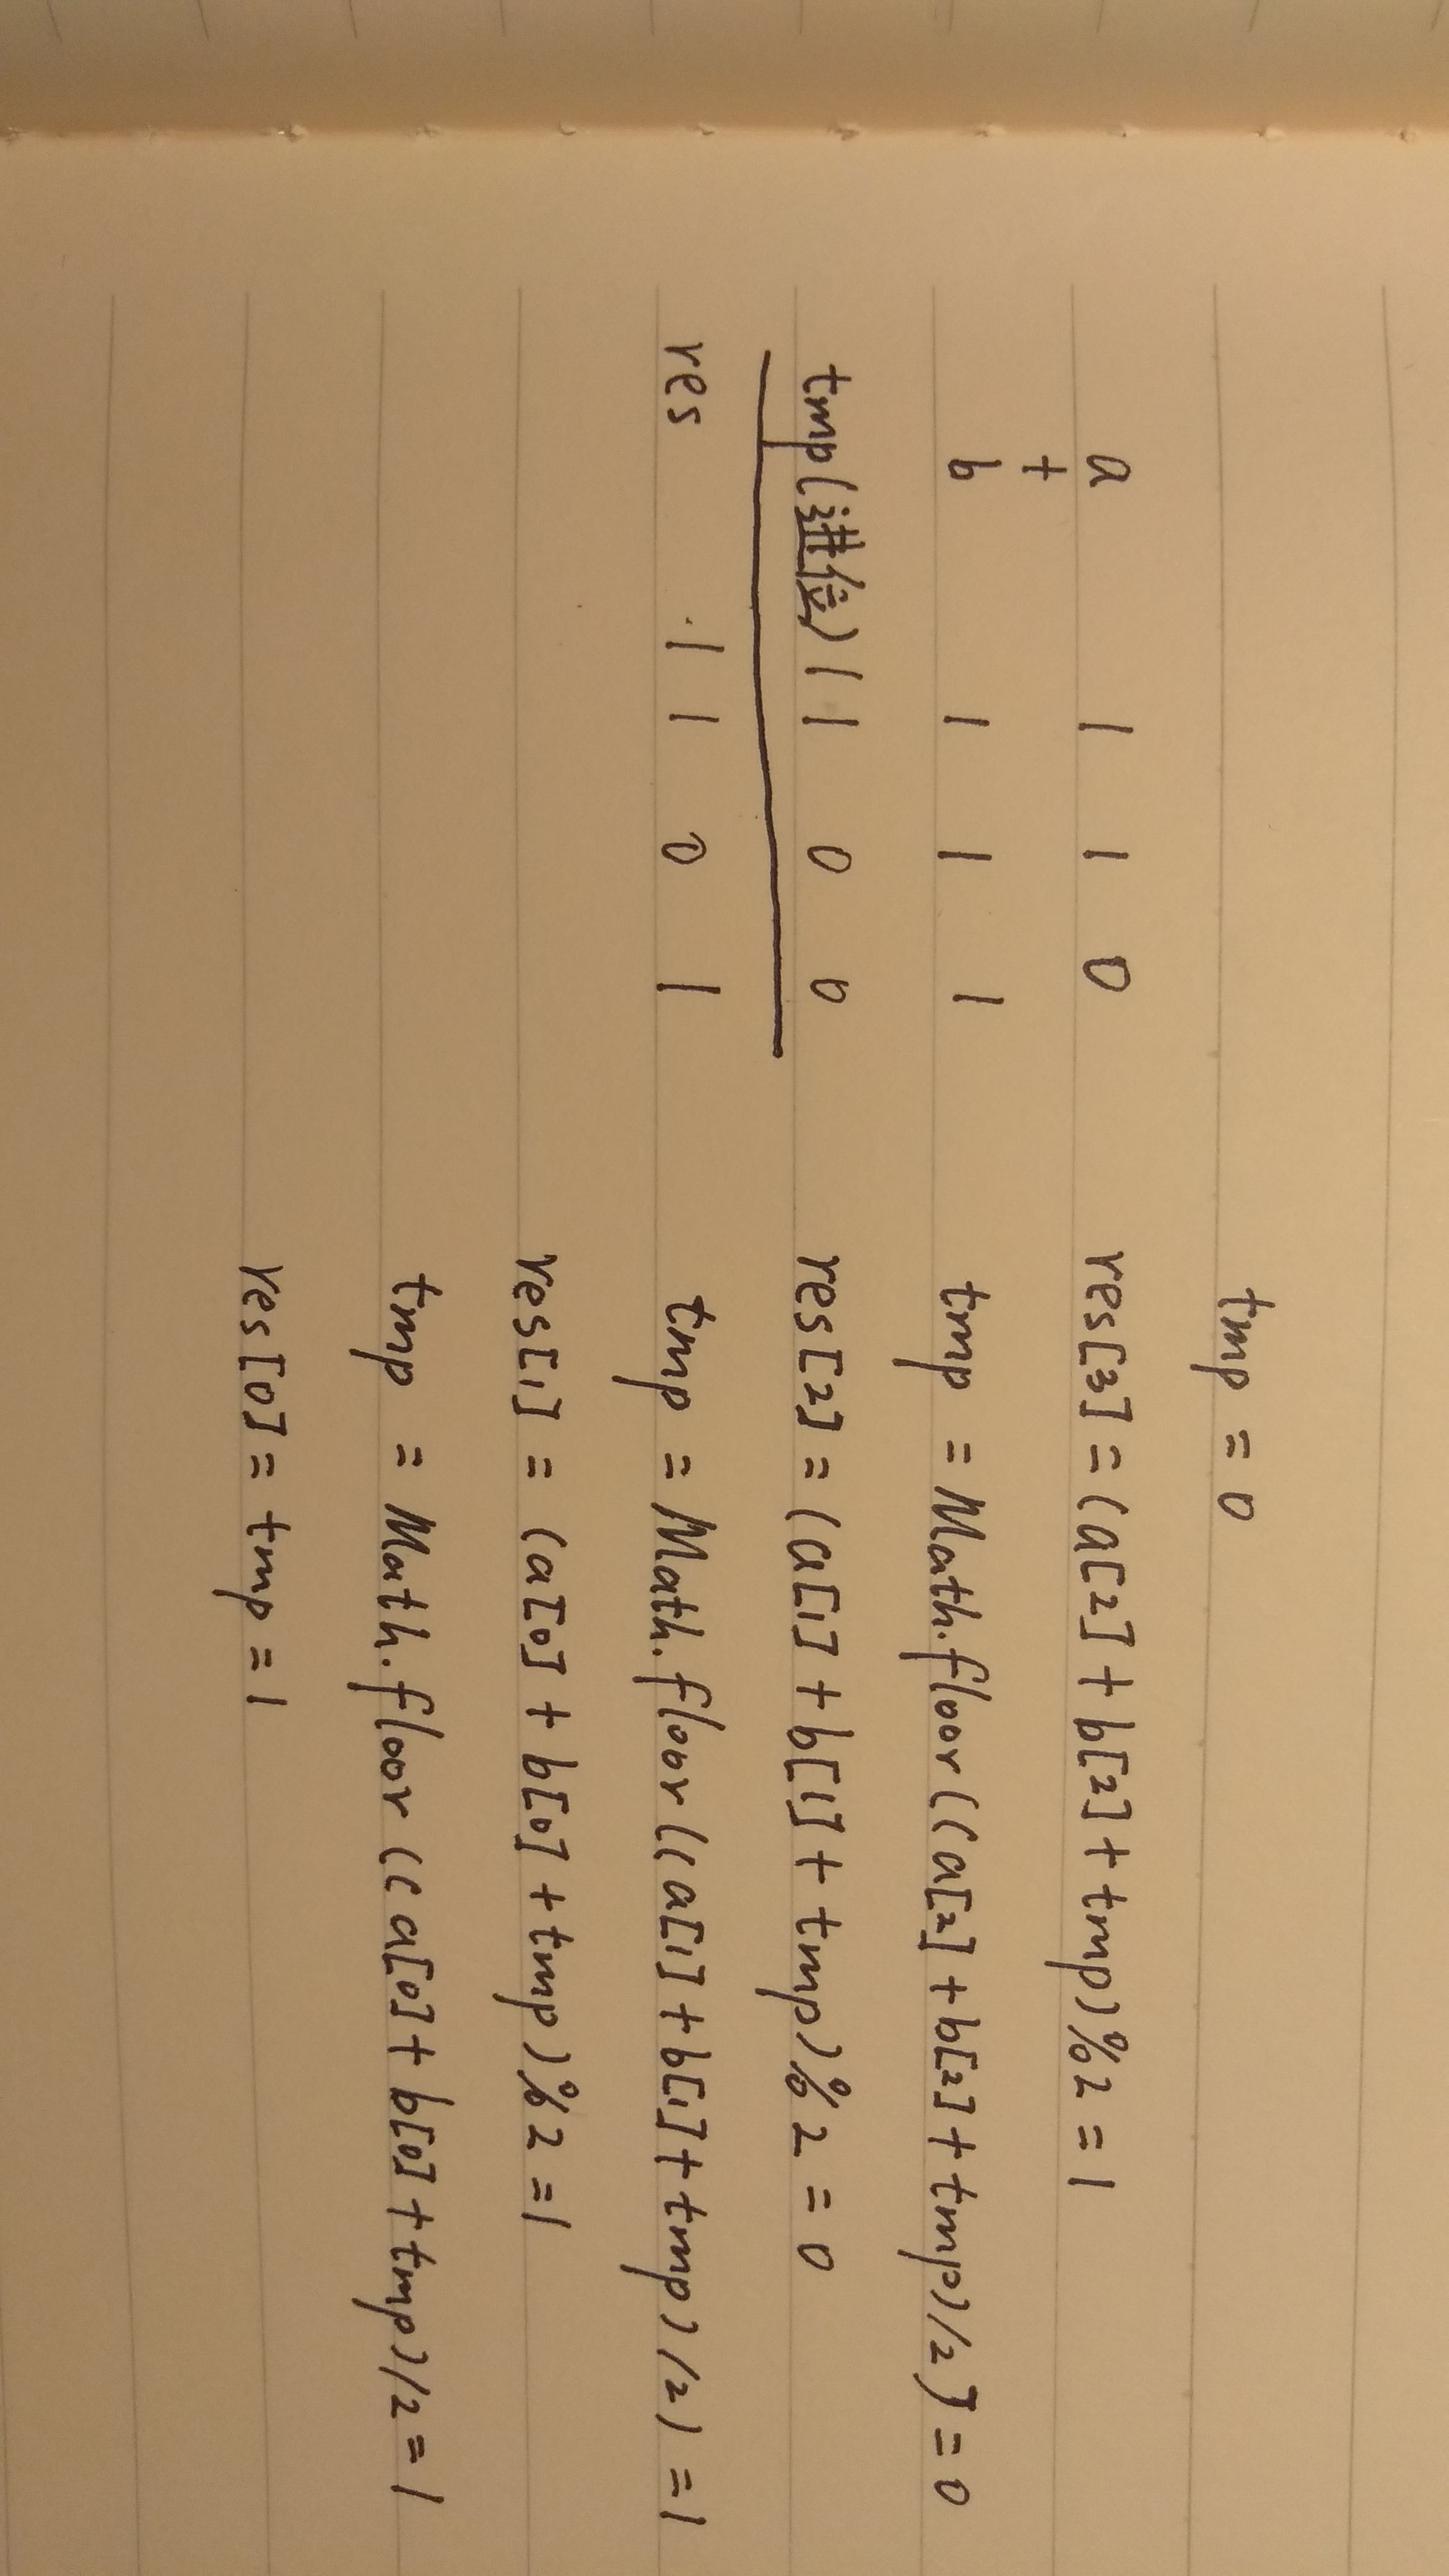 tmp = 0
a 1 1 0
+
b 1 1 1
tmp(进位) 1 1 0 0
res 1 1 0 1
res[3] = (a[2] + b[2] + tmp)%2 = 1
tmp = Math.floor((a[2] + b[2] + tmp)/2] = 0
res[2] = (a[1] + b[1] + tmp)%2 = 0
tmp = Math.floor((a[1] + b[1] + tmp)/2) = 1
res[1] = (a[0] + b[0] + tmp)%2 = 1
tmp = Math.floor((a[0] + b[0] + tmp)/2 = 1
res[0] = tmp = 1